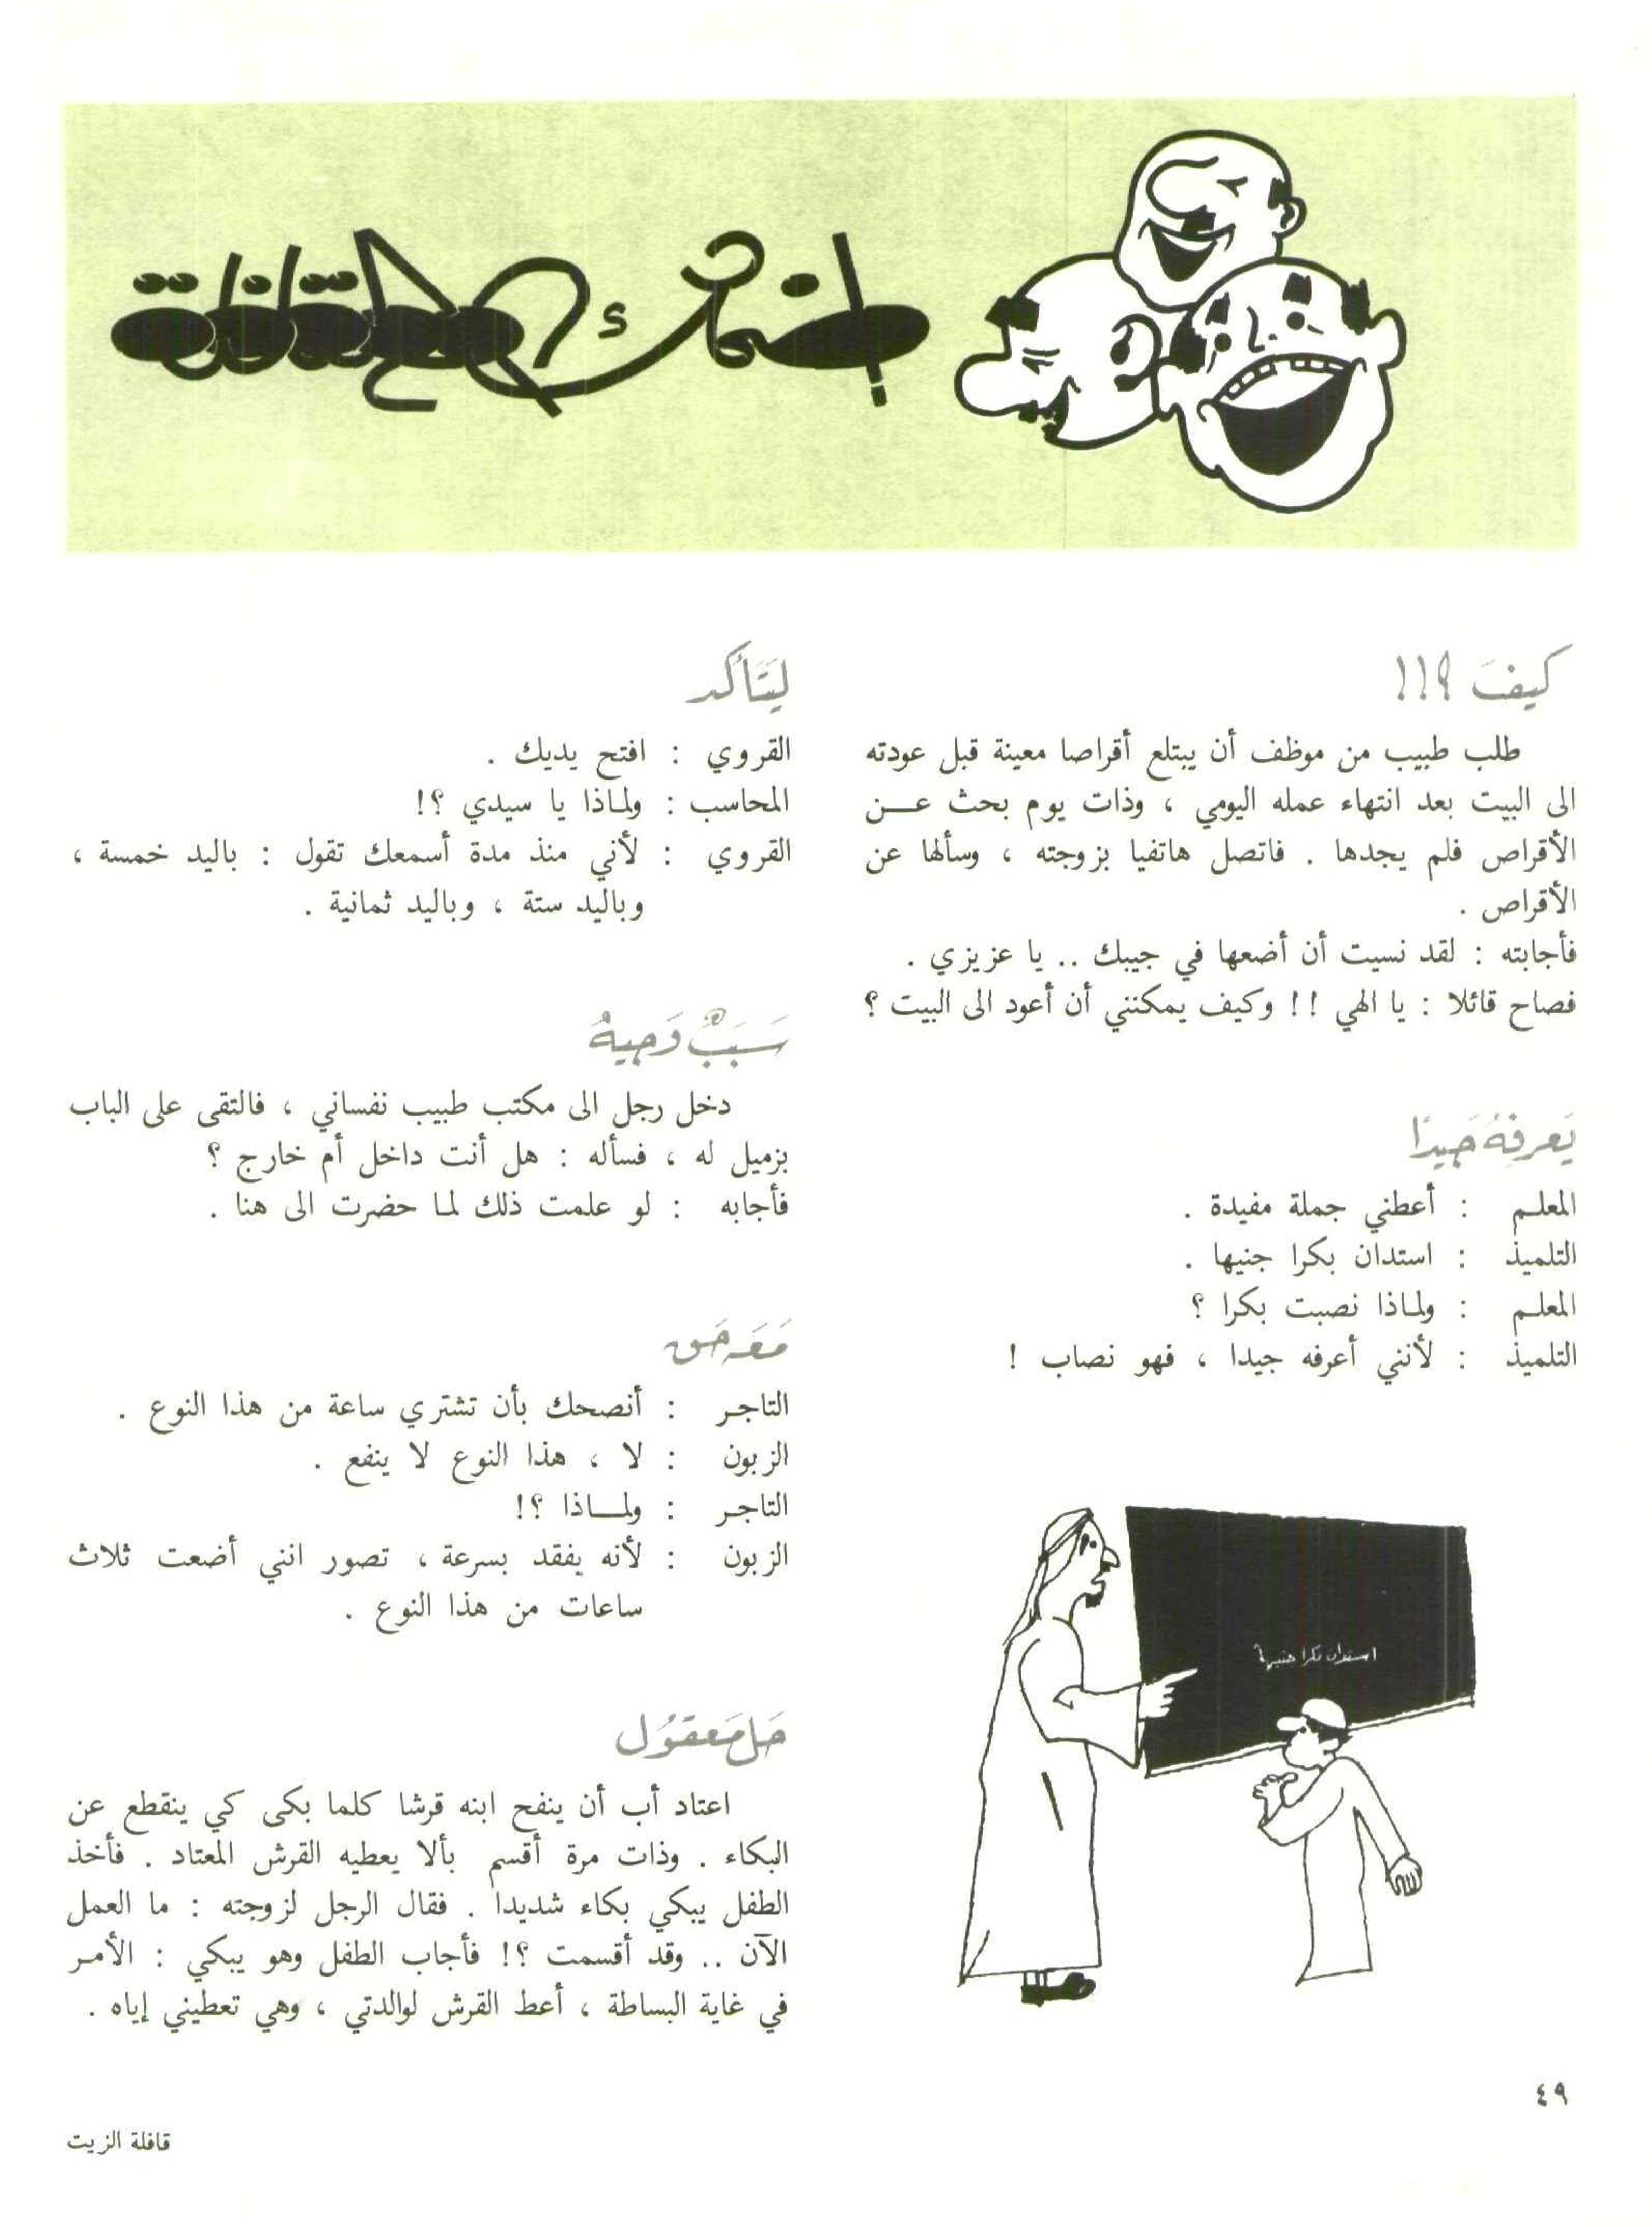 إضحك مع القافلة
كيف ؟!!
طلب طبيب من موظف أن يبتلع أقراصا معينة قبل عودته
الى البيت بعد انتهاء عمله اليومي ، وذات يوم بحث عــن
الأقراص فلم يجدها . فاتصل هاتفيا بزوجته ، وسألها عن
الأقراص .
فأجابته : لقد نسيت أن أضعها في جيبك .. يا عزيزي .
فصاح قائلا : يا الهي !! وكيف يمكنني أن أعود الى البيت ؟
يَعرفهُ جَيدًا
المعلـم : أعطني جملة مفيدة .
التلميذ : استدان بكرا جنيها .
المعلـم : ولماذا نصبت بكرا ؟
التلميذ : لأنني أعرفه جيدا ، فهو نصاب !
استدان بكرا جنيهاً
ليَتَأكد
القروي : افتح يديك .
المحاسب : ولماذا يا سيدي ؟!
القروي : لأني منذ مدة أسمعك تقول : باليد خمسة ،
وباليد ستة ، وباليد ثمانية .
سَبَبٌ وَجيهٌ
دخل رجل الى مكتب طبيب نفساني ، فالتقى على الباب
بزميل له ، فسأله : هل أنت داخل أم خارج ؟
فأجابه : لو علمت ذلك لما حضرت الى هنا .
مَعَه حَق
التاجـر : أنصحك بأن تشتري ساعة من هذا النوع .
الزبون : لا ، هذا النوع لا ينفع .
التاجـر : ولمـــاذا ؟!
الزبون : لأنه يفقد بسرعة ، تصور انني أضعت ثلاث
ساعات من هذا النوع .
حَل مَعقوُل
اعتاد أب أن ينفح ابنه قرشا كلما بكى كي ينقطع عن
البكاء . وذات مرة أقسم بألا يعطيه القرش المعتاد . فأخذ
الطفل يبكي بكاء شديدا . فقال الرجل لزوجته : ما العمل
الآن .. وقد أقسمت ؟! فأجاب الطفل وهو يبكي : الأمـر
في غاية البساطة ، أعط القرش لوالدتي ، وهي تعطيني إياه .
٤٩
قافلة الزيت